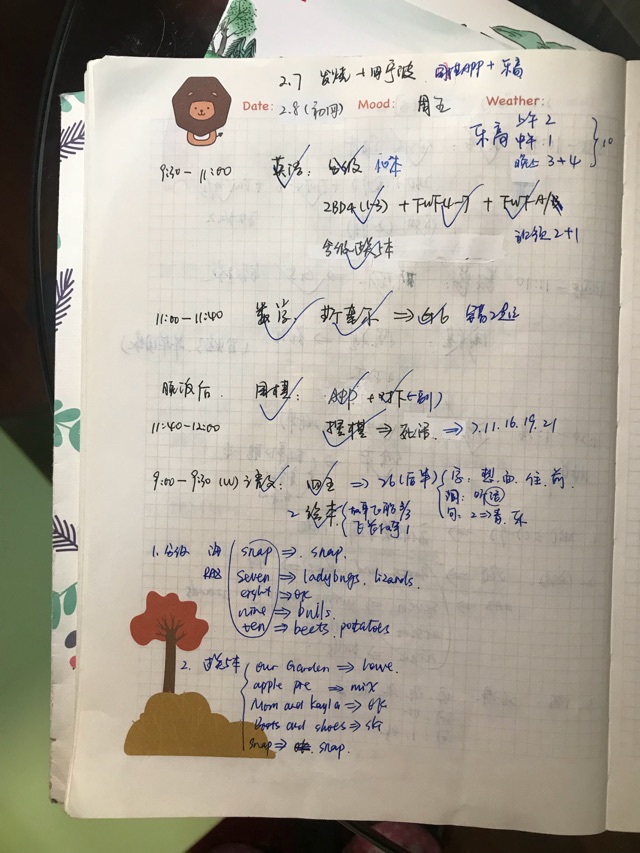 2.7 发烧+ 围棋APP+乐高
Date: 2.8(初四) Mood: 周五 Weather:
乐高 上午2
中午1
晚上3+4
10
9:30-11:00 英语: 分级 10本
2BD4(1-3) + FWF(4-7) + FWF-A/
2+1
分级 5本
11:00-11:40 数学 ⇒
晚饭后 围棋: APP + 对下(一副)
11:40-12:00 围棋⇒死活 ⇒ 7.11.16.19.21
9:00-9:30(W) 语文: 四五 ⇒ 26(后半) 字: 想.面.住.前
词: 听话
句: 2⇒着.乐
2绘本 3/3
1
1.分级 海 snap ⇒ snap.
RAZ seven ⇒ ladybugs. lizards.
eight ⇒ ok
nine ⇒ bulls.
ten ⇒ beets. potatoes
2. 5本 Our Garden ⇒ Love.
apple pie ⇒ mix
Mom and Kayla ⇒ ok
Boots and shoes ⇒ ski
Snap ⇒ snap.